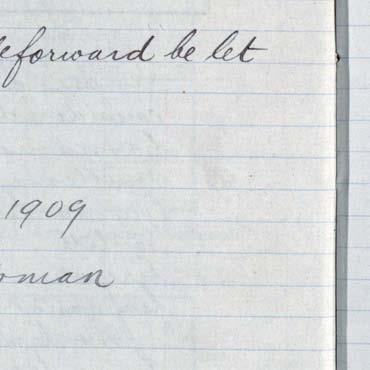 eforward be let
1909
oman